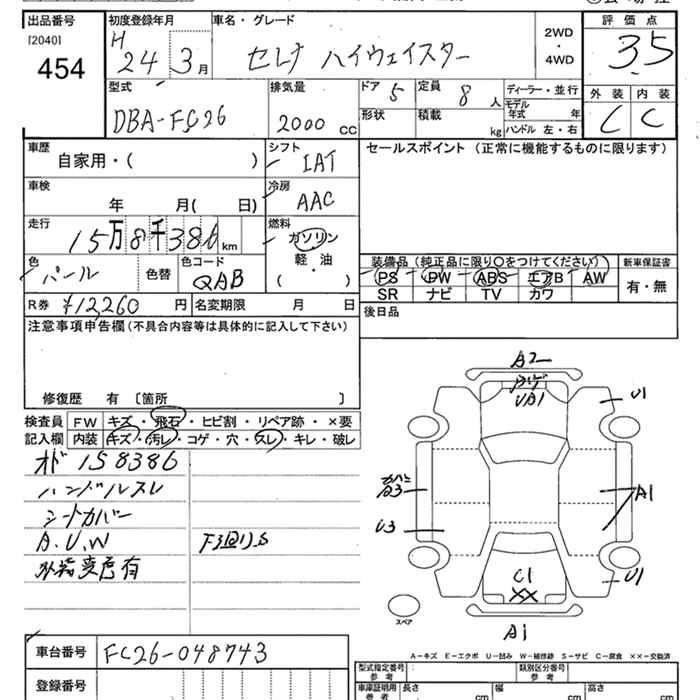 出品番号 初度登録年月 車名・グレード 2WD・4WD 評価点
[2040] H 24 3月 セレナ ハイウェイスター 3.5
454
型式 排気量 ドア 5 定員 8人 ディーラー・並行 外装 内装
DBA-FC26 2000 CC 形状 積載 kg モデル年式 年 C C
ハンドル 左・右
車歴 シフト セールスポイント (正常に機能するものに限ります)
自家用・( ) IAT
車検 冷房
年 月( 日) AAC
走行 燃料
15万8千386km ガソリン
軽・油
・
( )
色 色コード 装備品 (純正品に限り〇をつけてください) 新車保証書
パール 色替 QAB PS PW ABS エアB AW 有・無
SR ナビ TV カワ
R券 ¥12,260 円 名変期限 月 日 後日品
注意事項申告欄 (不具合内容等は具体的に記入して下さい)
修復歴 有 〔箇所 〕
検査員 FW キズ・飛石・ヒビ割・リペア跡・×要
記入欄 内装 キズ・汚レ・コゲ・穴・スレ・キレ・破レ
オド 158386
ハンドルスレ
シートカバー
A.U.W
外装変色有
A2
UA1
U1
A3
A1
U3
C1
XX
U1
スペア
A1
A-キズ E-エクボ U-凹み W-補修跡 S-サビ C-腐食 ××-交換済
車台番号 FC26-048743
型式指定番号 参考 類別区分番号 参考
登録番号 車庫証明用 参考 長さ cm 幅 cm 高さ cm